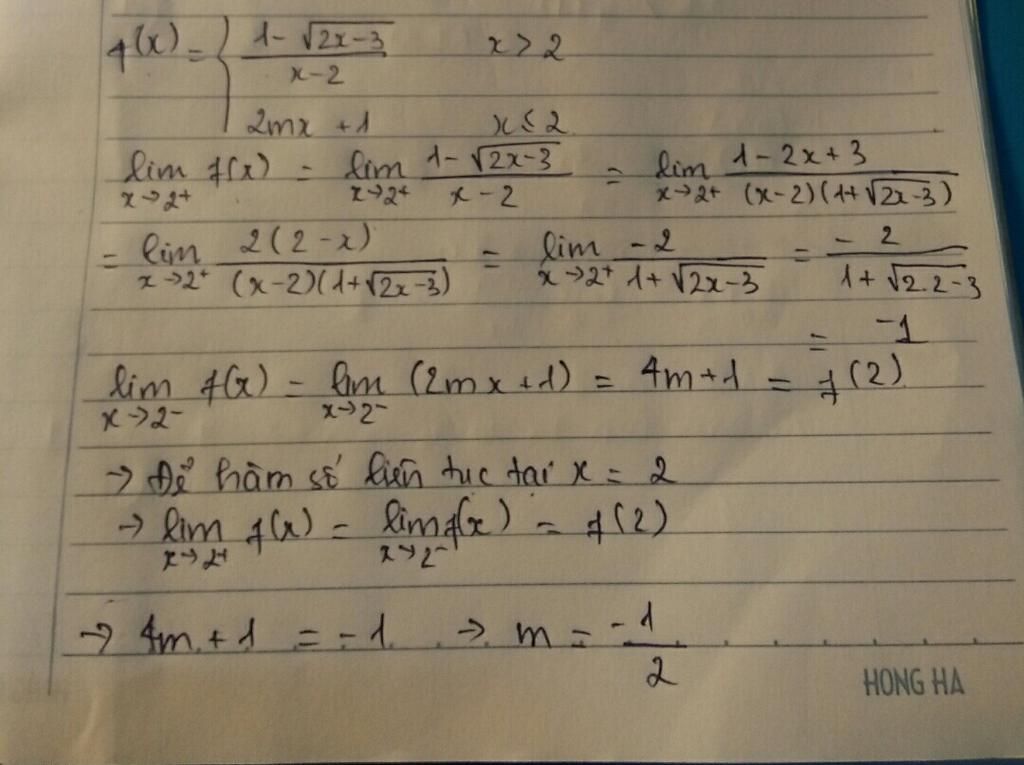 f(x) = { (1 - √(2x-3))/(x-2)   x > 2
2mx + 1   x ≤ 2
lim x→2+ f(x) = lim x→2+ (1 - √(2x-3))/(x-2) = lim x→2+ (1 - 2x + 3)/((x-2)(1+√(2x-3)))
= lim x→2+ 2(2-x)/((x-2)(1+√(2x-3))) = lim x→2+ -2/(1+√(2x-3)) = -2/(1+√(2.2-3))
= -1
lim x→2- f(x) = lim x→2- (2mx+1) = 4m+1 = f(2)
→ Để hàm số liên tục tại x = 2
→ lim x→2+ f(x) = lim x→2- f(x) = f(2)
→ 4m + 1 = -1 → m = -1/2
HONG HA